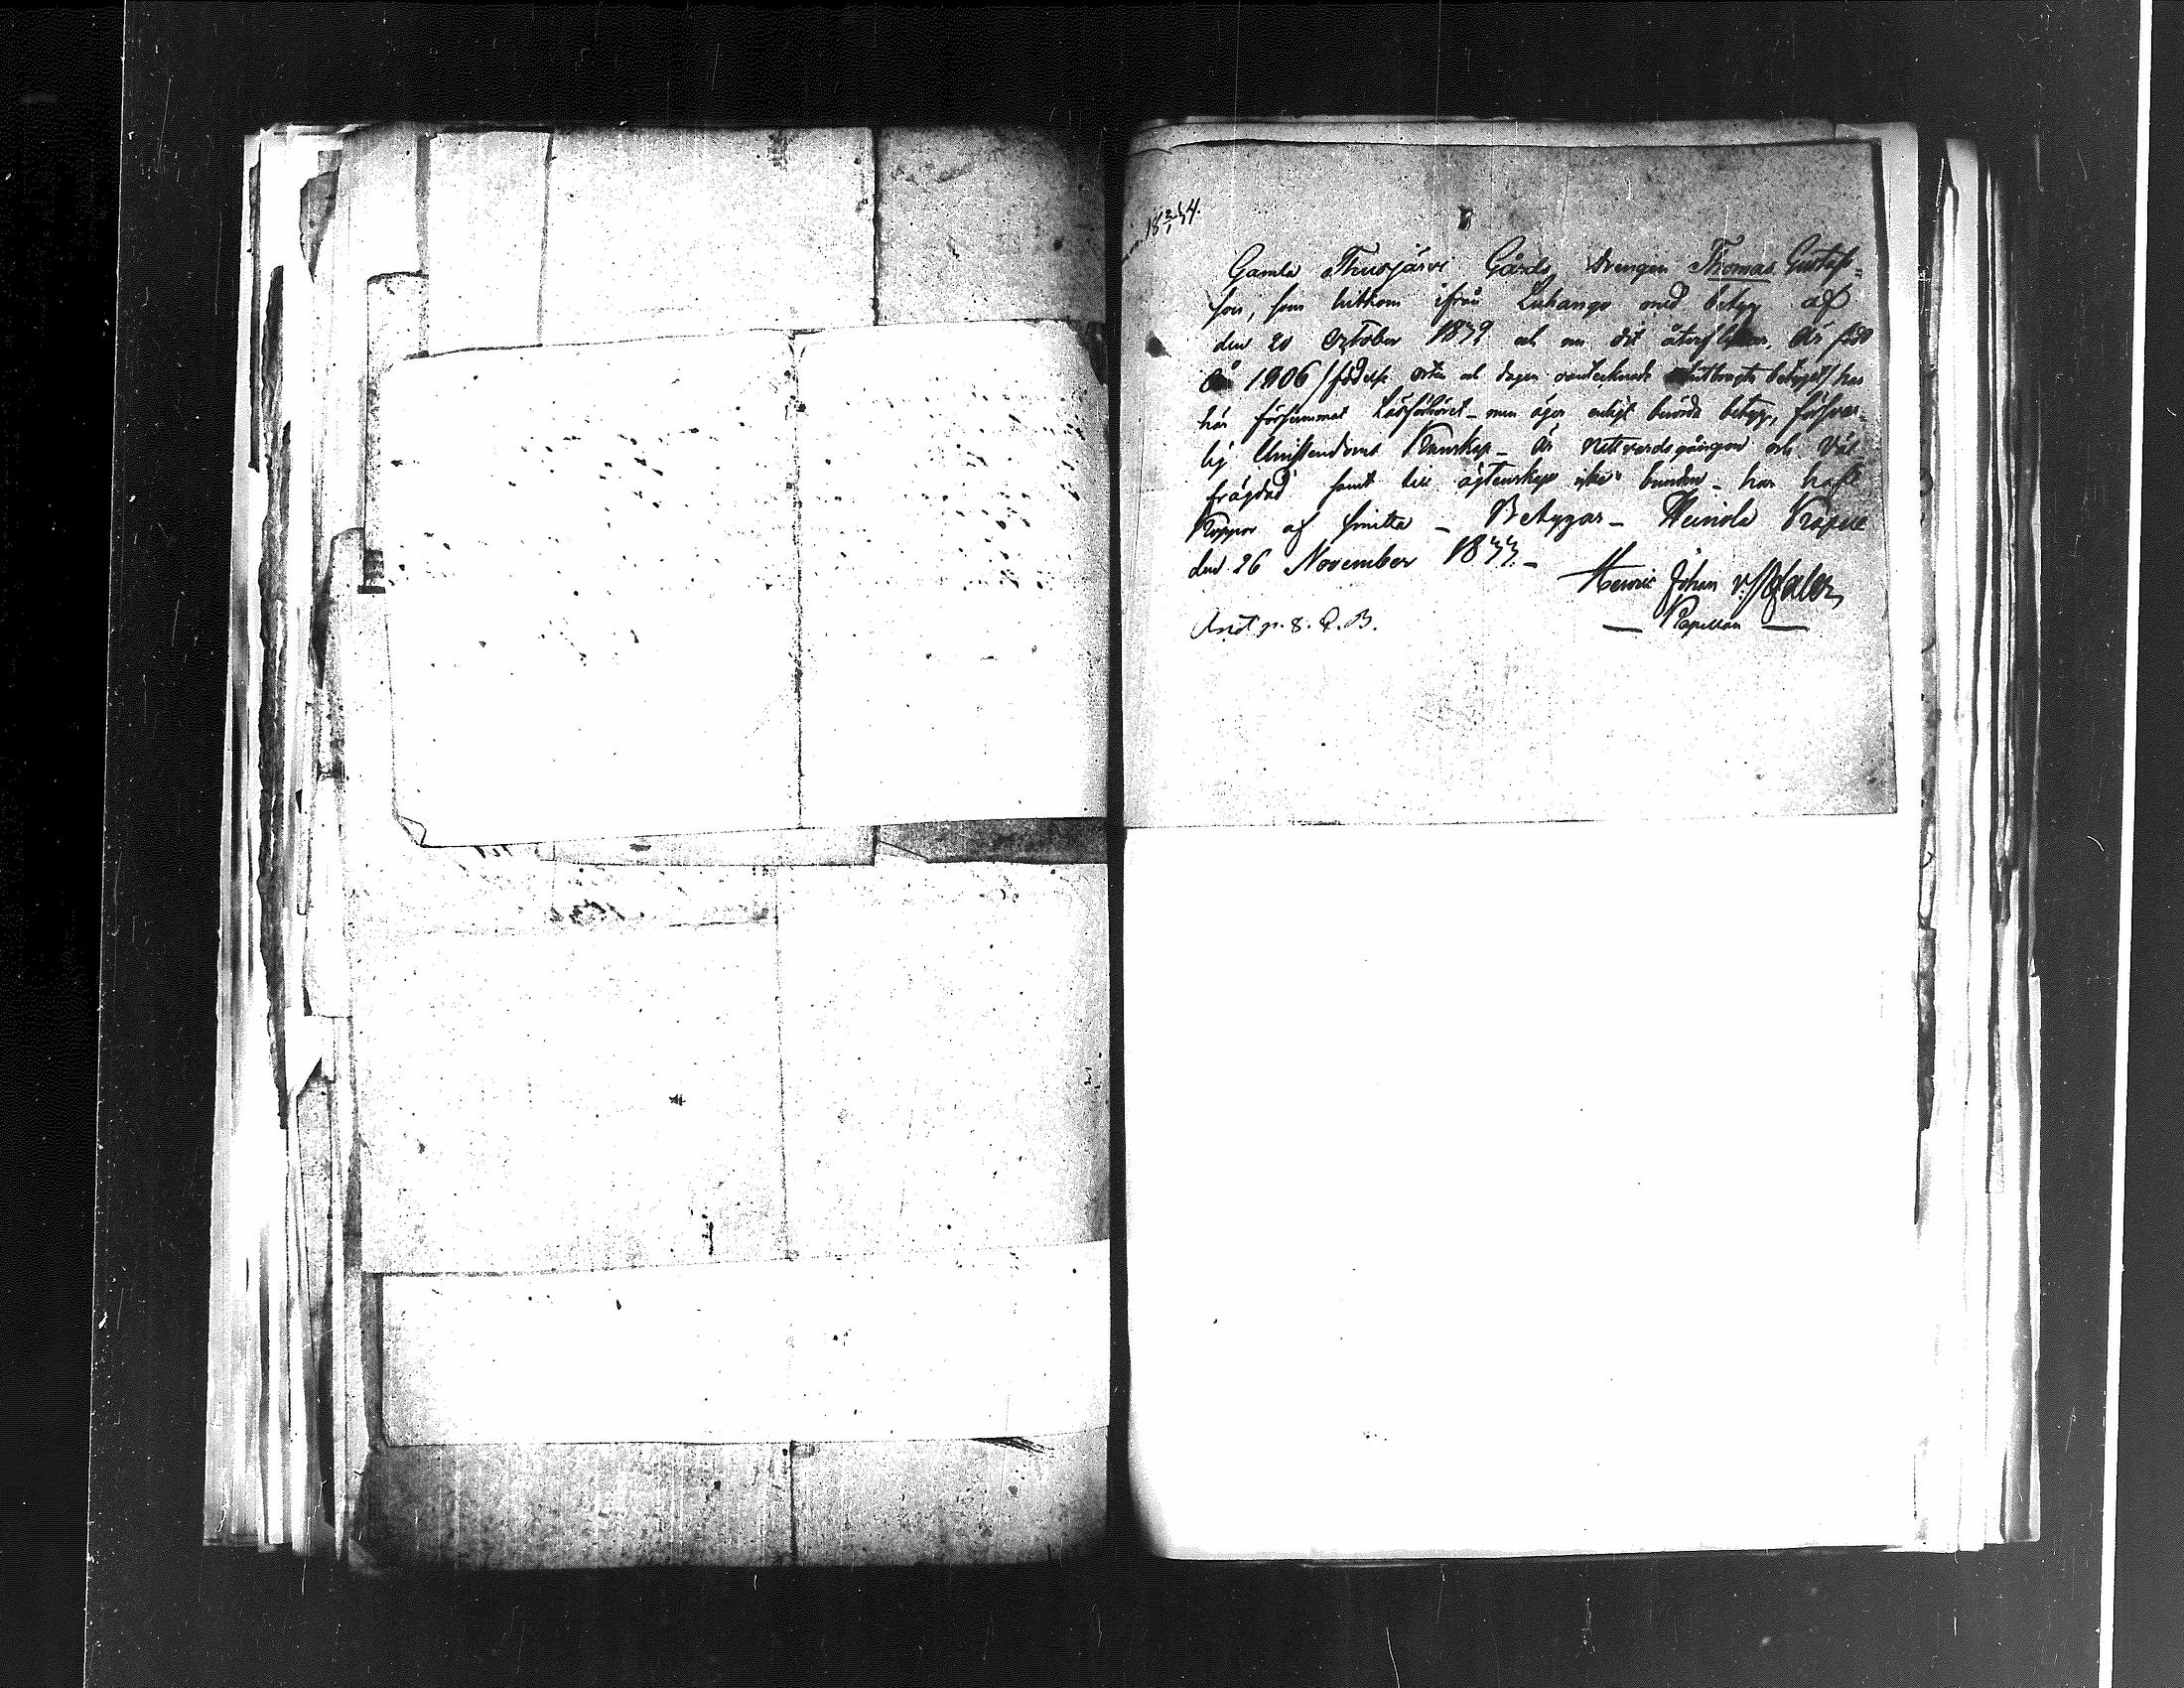 18 2/1 34.
Gamla Thusjärvi Gårds drengen Thomas Gustafs=
son, som hitkom ifrån Luhango med betyg af
den 20 October 1832 och nu dit återflyttar, är född
år 1806 / födelse orten och dagen oantecknade betyget / har
här försummat Läsförhöret – men äger enligt berörde betyg, försvar=
lig Christendoms Kunskap – är Nattvardsgången och väl
frägdad samt till ägtenskap icke bunden – har haft
Koppor af smitta – Betygar – Heinola Kapell
den 26 November 1833. –
Henric Johan v:
– Capellan –
Ant p. 8. C. B.